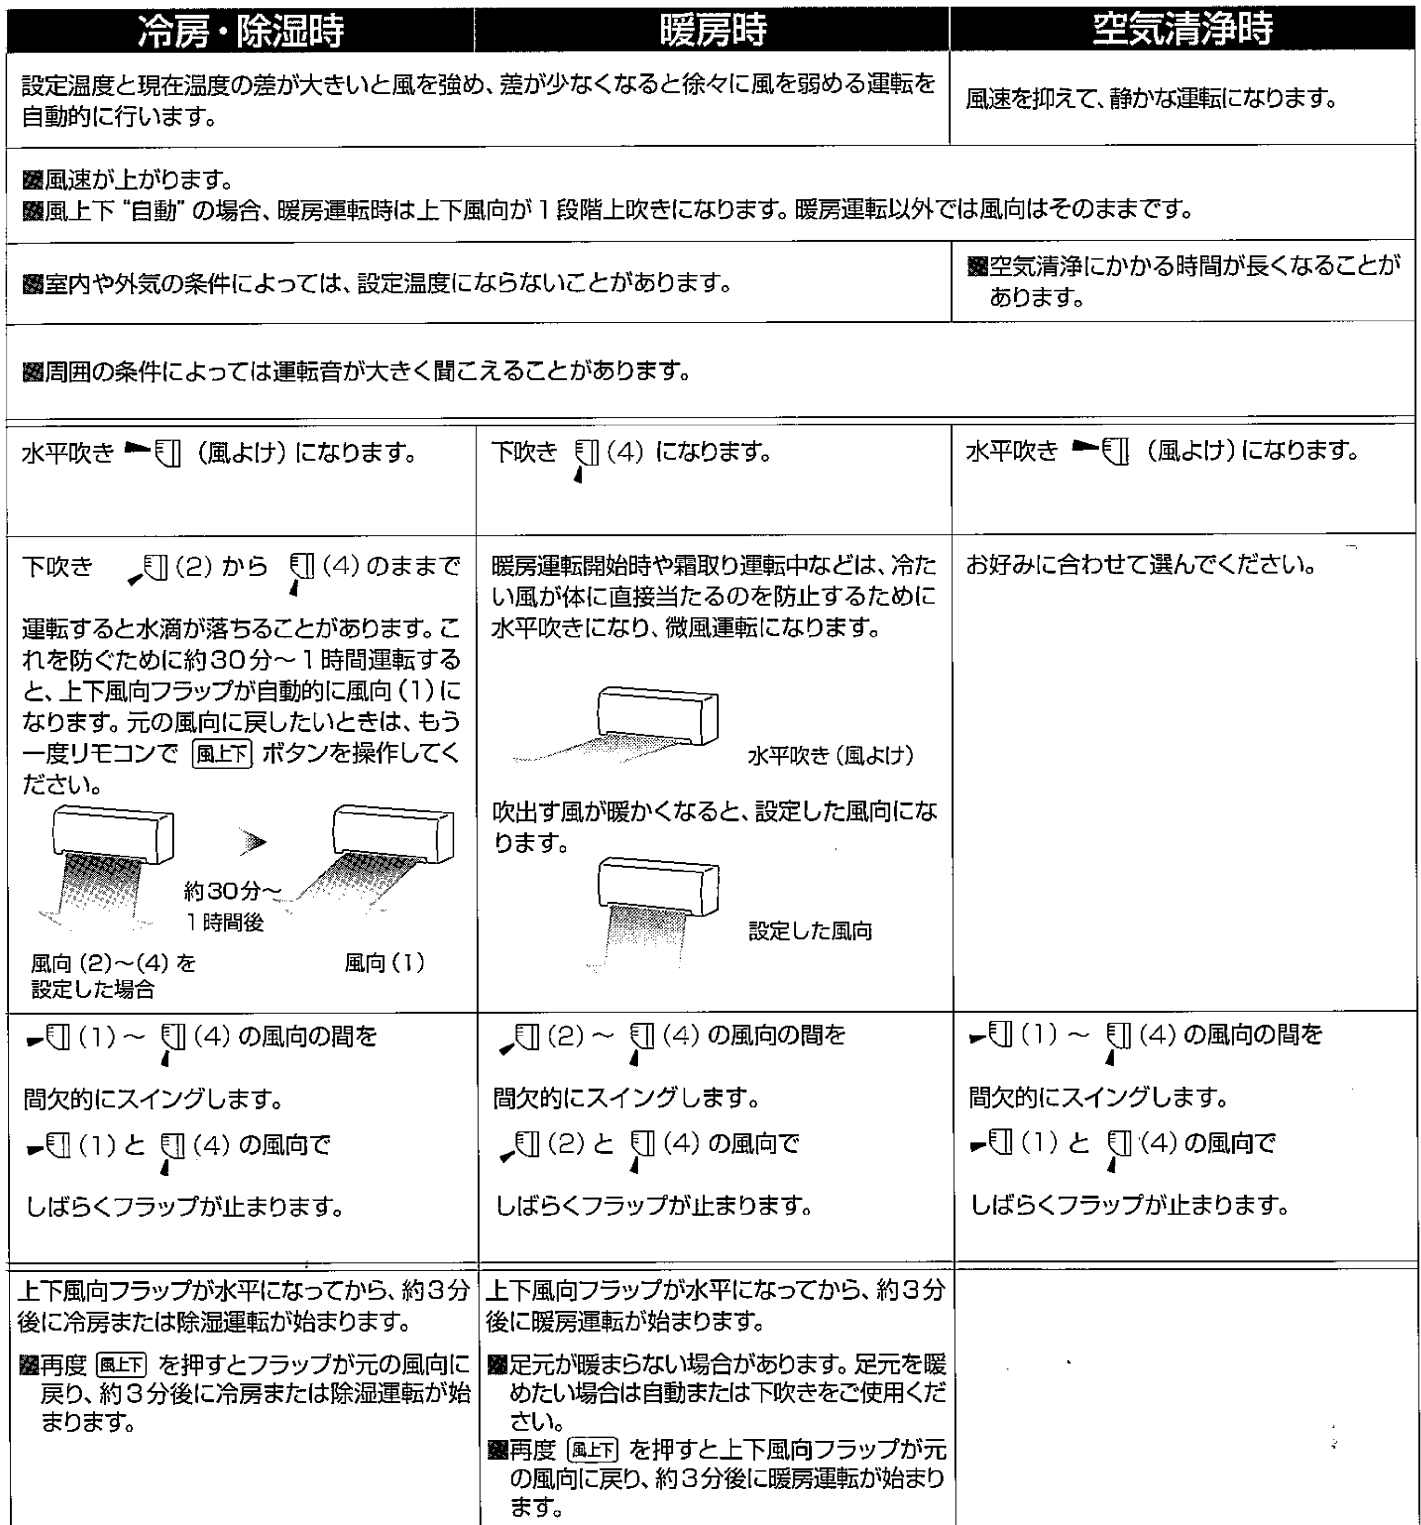 冷房・除湿時
暖房時
空気清浄時
設定温度と現在温度の差が大きいと風を強め、差が少なくなると徐々に風を弱める運転を
自動的に行います。
風速を抑えて、静かな運転になります。
■風速が上がります。
■風上下 “自動” の場合、暖房運転時は上下風向が1段階上吹きになります。暖房運転以外では風向はそのままです。
■室内や外気の条件によっては、設定温度にならないことがあります。
■空気清浄にかかる時間が長くなることが
あります。
■周囲の条件によっては運転音が大きく聞こえることがあります。
水平吹き (風よけ) になります。
下吹き (4) になります。
水平吹き (風よけ) になります。
下吹き (2) から (4) のままで
運転すると水滴が落ちることがあります。こ
れを防ぐために約30分～1時間運転する
と、上下風向フラップが自動的に風向 (1) に
なります。元の風向に戻したいときは、もう
一度リモコンで 風上下 ボタンを操作してく
ださい。
約30分～
1時間後
風向 (2)～(4) を
設定した場合
風向 (1)
暖房運転開始時や霜取り運転中などは、冷た
い風が体に直接当たるのを防止するために
水平吹きになり、微風運転になります。
水平吹き (風よけ)
吹出す風が暖かくなると、設定した風向にな
ります。
設定した風向
お好みに合わせて選んでください。
(1) ～ (4) の風向の間を
間欠的にスイングします。
(1) と (4) の風向で
しばらくフラップが止まります。
(2) ～ (4) の風向の間を
間欠的にスイングします。
(2) と (4) の風向で
しばらくフラップが止まります。
(1) ～ (4) の風向の間を
間欠的にスイングします。
(1) と (4) の風向で
しばらくフラップが止まります。
上下風向フラップが水平になってから、約3分
後に冷房または除湿運転が始まります。
■再度 風上下 を押すとフラップが元の風向に
戻り、約3分後に冷房または除湿運転が始
まります。
上下風向フラップが水平になってから、約3分
後に暖房運転が始まります。
■足元が暖まらない場合があります。足元を暖
めたい場合は自動または下吹きをご使用くだ
さい。
■再度 風上下 を押すと上下風向フラップが元
の風向に戻り、約3分後に暖房運転が始まり
ます。